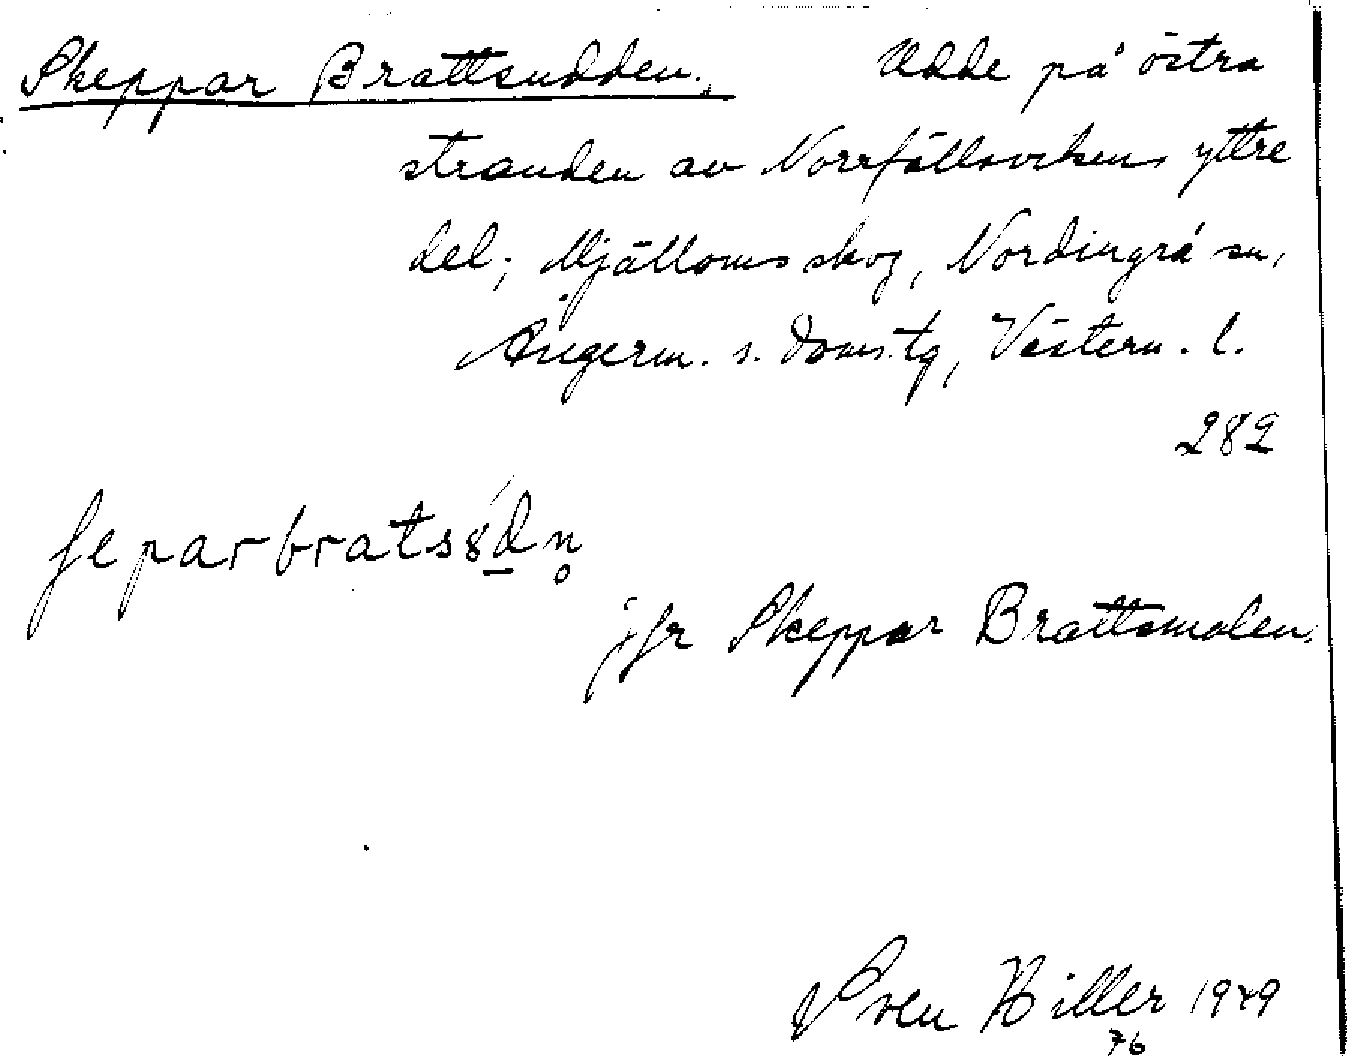 Skeppar Brattsudden., Udde på östra
stranden av Norrfällsvikens yttre
del; Mjälloms skog, Nordingrå sn,
Ångerm. s. doms.tg, Västern. l.
282
ʃeparbratsȣdn̥
jfr Skeppar Brattsmalen.
Sven Hiller 1949
76